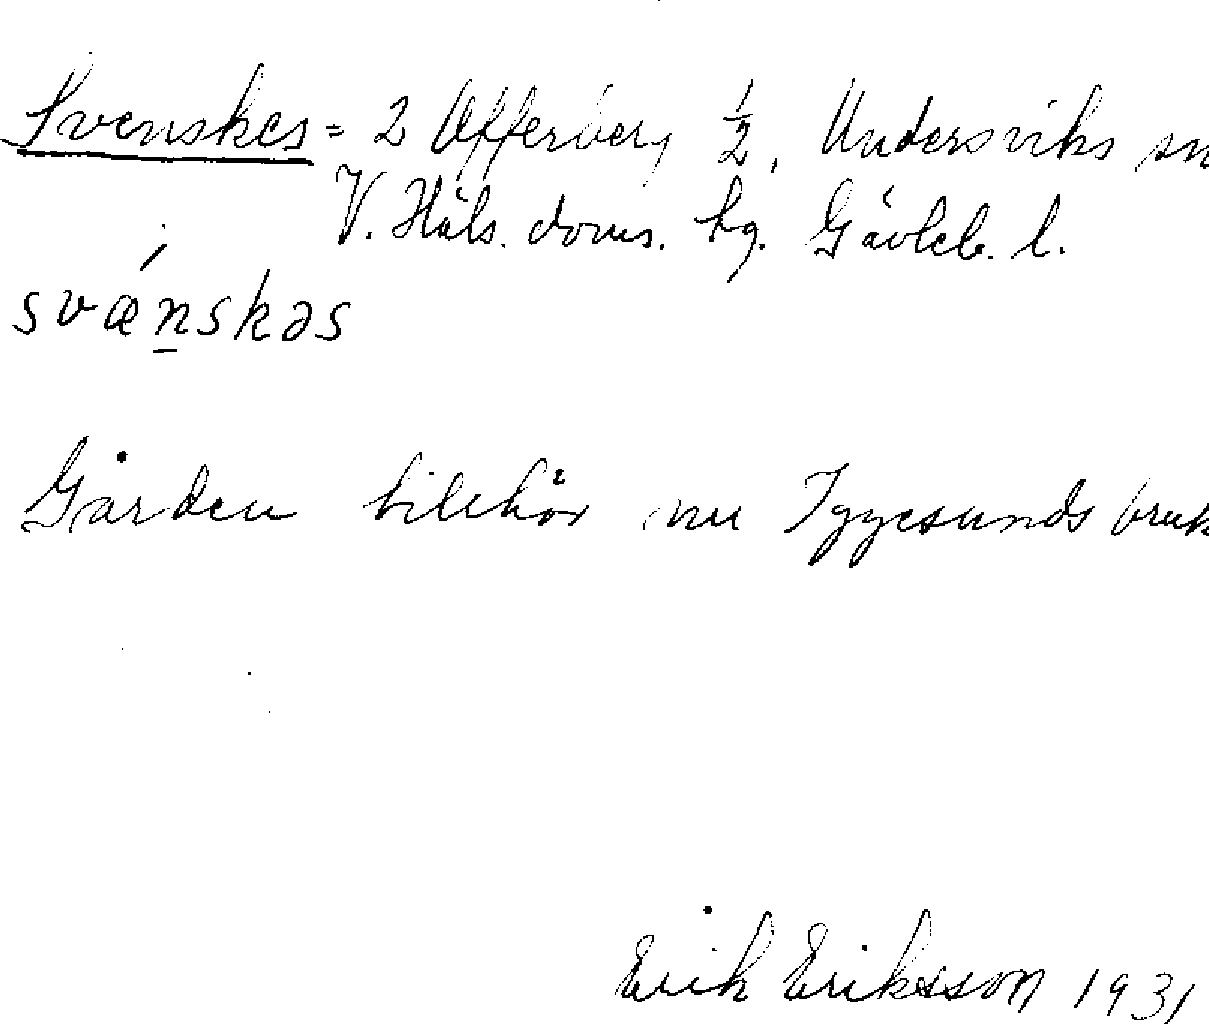 Svenskes = 2 Offerberg ½, Undersviks sn
V. Häls. doms. tg. Gävleb. l.
svænskəs
Gården tillhör nu Iggesunds bruk
Erik Eriksson 1931